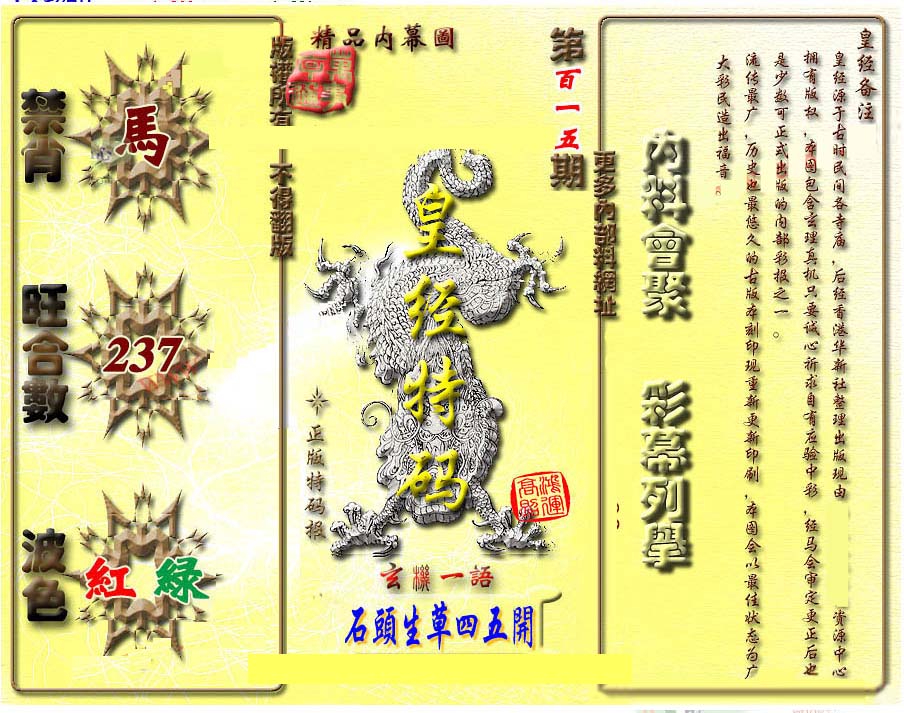 精品内幕圖
版權所有
不得翻版
禁肖
馬
旺合數
237
波色
紅 綠
皇经特码
正版特码报
鴻運高照
玄機一語
石頭生草四五開
第百一五期
更多内部料網址
内料會聚
彩幕列擧
皇经备注
皇经源于古时民间各寺庙,后经香港华新社整理出版现由 资源中心
拥有版权,本图包含玄理真机只要诚心祈求自有应验中彩,经马会审定更正后也
是少数可正式出版的内部彩报之一。
流传最广,历史也最悠久的古版本刻印现重新更新印刷,本图会以最佳状态为广
大彩民造出福音